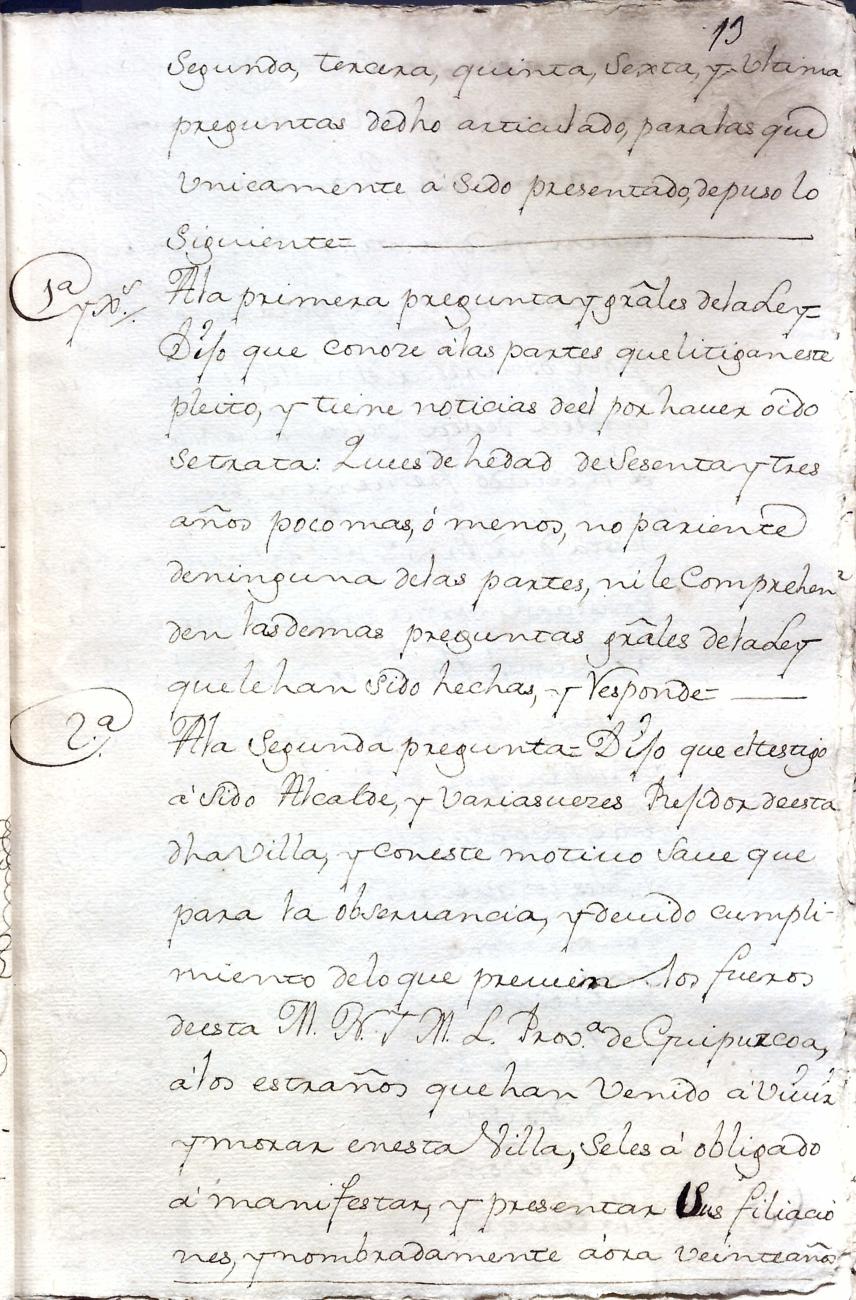 13
Segunda, tercera, quinta, Sexta, y Vltima
preguntas dedho articulado, paralas que
Vnicamente á Sido presentado, depuso lo
Siguiente=
1ª
Ala primera pregunta y grãles delaLey=
Dijo que conoze álas partes quelitiganeste
pleito, y tiene noticias deel por hauer oido
Setrata: Quees de hedad de Sesenta y tres
años poco mas, ó menos, no pariente
deninguna delas partes, nile Comprehen
den lasdemas preguntas grãles delaLey
quelehan Sido hechas, y Responde=
2.ª
Ala Segunda pregunta= Dijo que eltestigo
á Sido Alcalde, y Variasuezes Rejidor deesta
dhaVilla, y coneste motiuo Saue que
para la obseruancia, y deuido cumpli-
miento deloque preuien los fueros
deesta M. N. Y M. L. Prov.ª de Guipuzcoa,
álos estraños quehan Venido á Viuir
y morar enesta Villa, Seles á obligado
á manifestar, y presentar Sus filiacio
nes, y nombradamente áora veinteaños